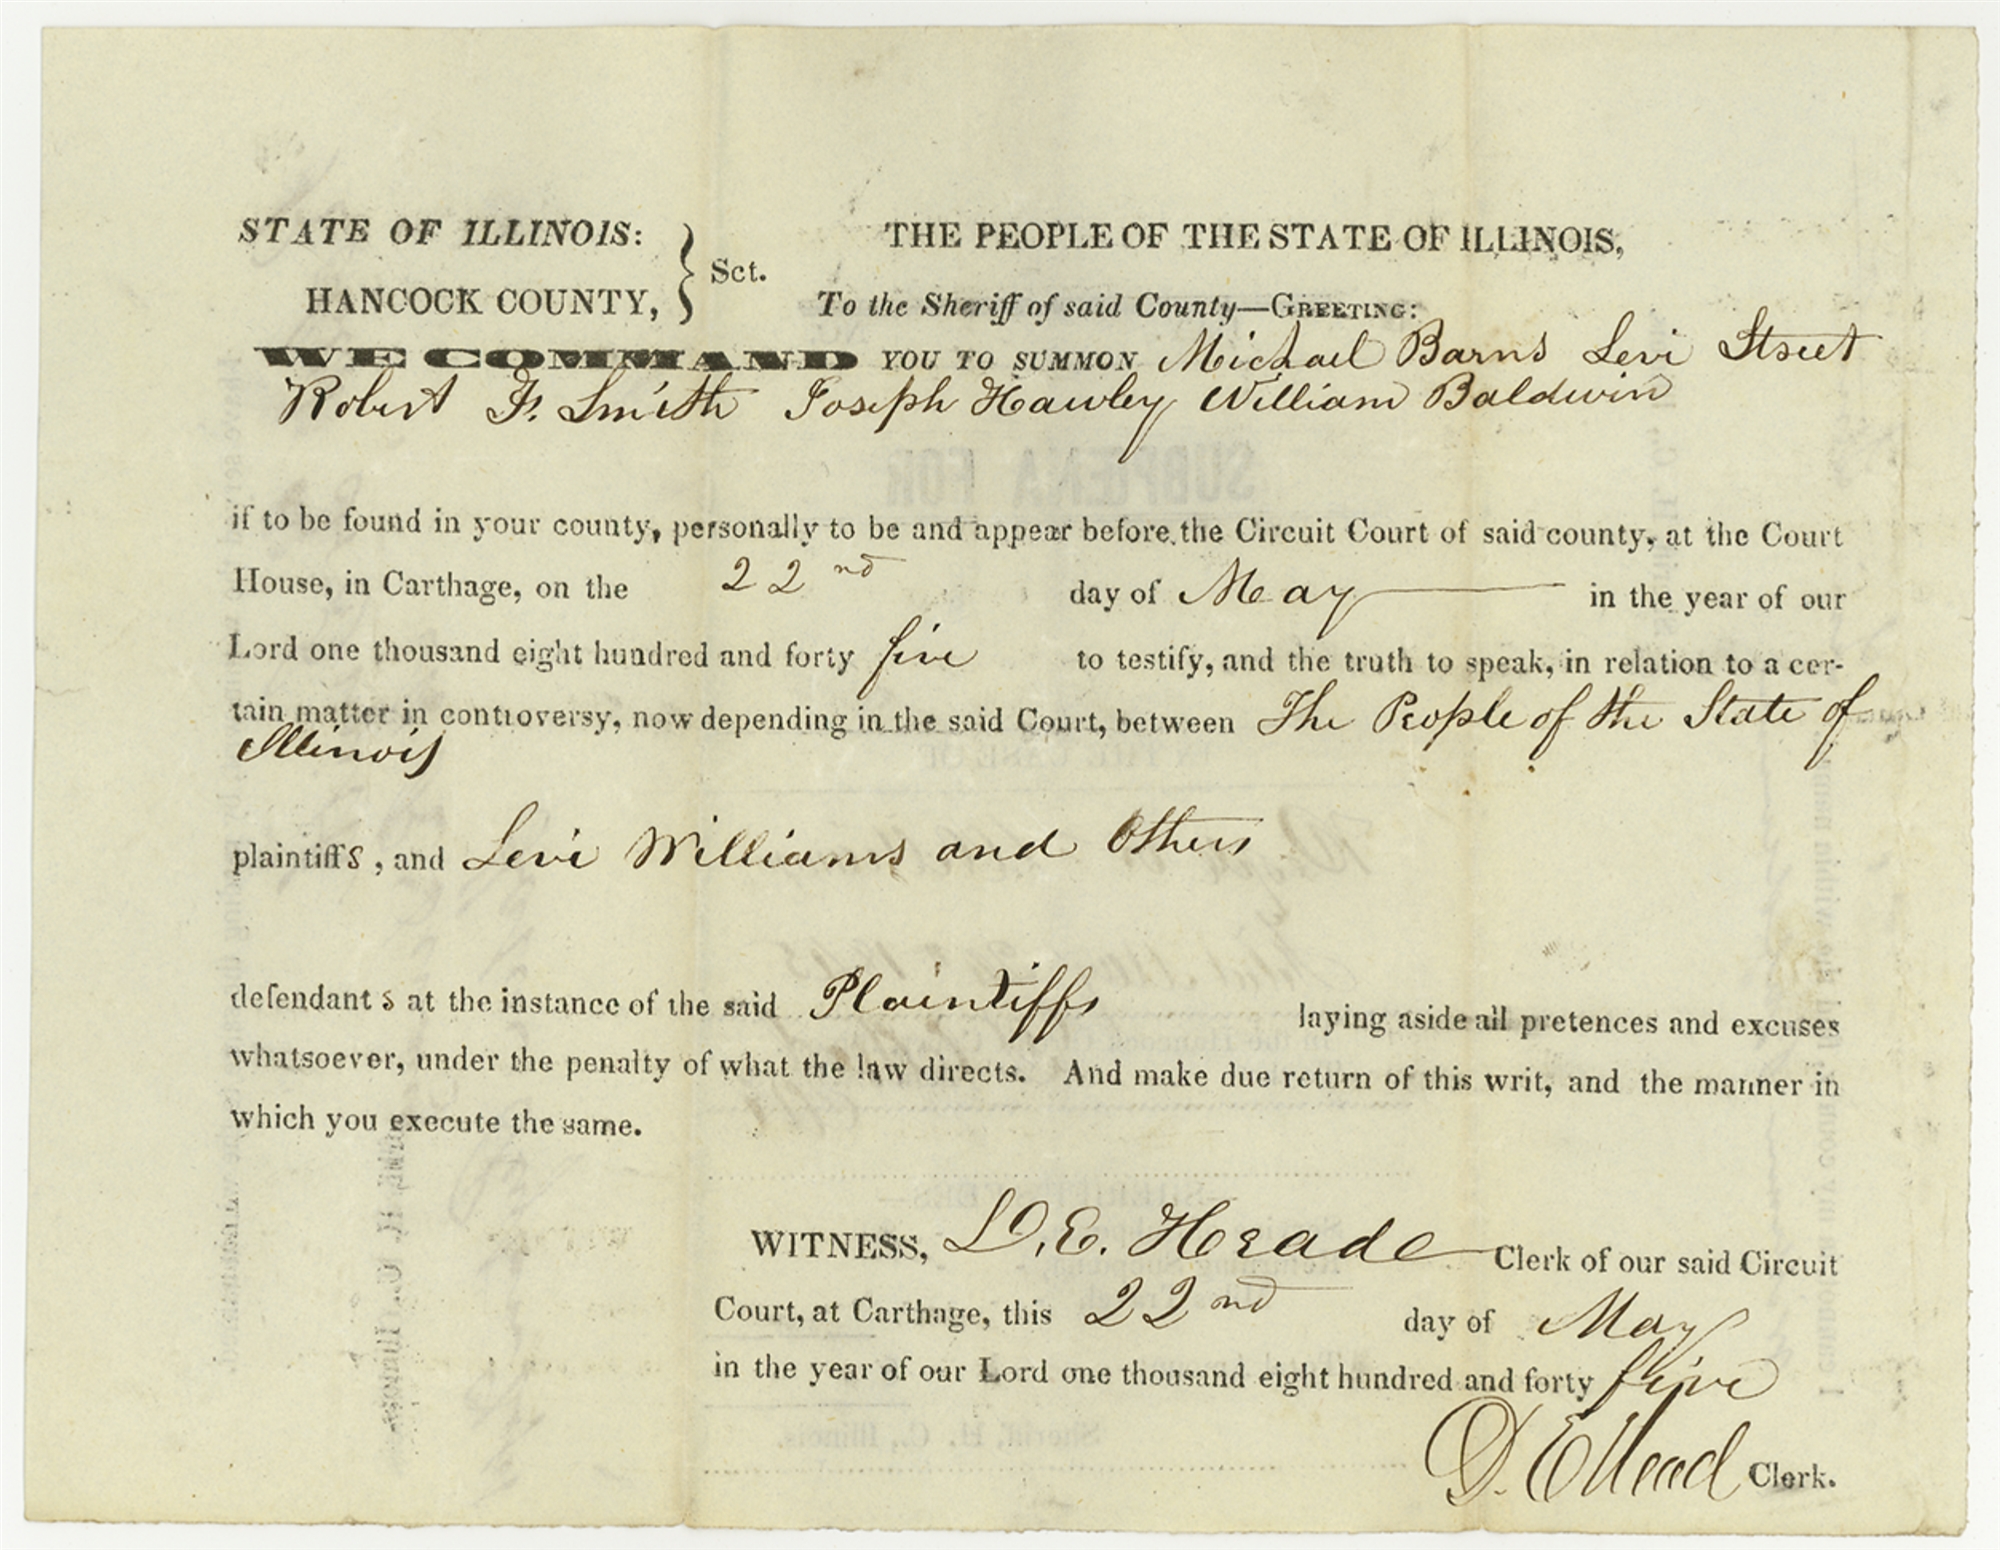 STATE OF ILLINOIS: } Sct. THE PEOPLE OF THE STATE OF ILLINOIS,
HANCOCK COUNTY, To the Sheriff of said County—GREETING:
WE COMMAND YOU TO SUMMON Michael Barns Levi Street
Robert F. Smith Joseph Hawley William Baldwin
SUBPŒNA FOR
if to be found in your county, personally to be and appear before the Circuit Court of said county, at the Court
House, in Carthage, on the 22nd day of May in the year of our
Lord one thousand eight hundred and forty five to testify, and the truth to speak, in relation to a cer-
tain matter in controversy, now depending in the said Court, between The People of the State of
Illinois
IN THE CASE OF
plaintiffs, and Levi Williams and Others
defendant s at the instance of the said Plaintiffs laying aside all pretences and excuses
whatsoever, under the penalty of what the law directs. And make due return of this writ, and the manner in
which you execute the same.
WITNESS, D. E. Heade Clerk of our said Circuit
Court, at Carthage, this 22nd day of May
in the year of our Lord one thousand eight hundred and forty five
Sheriff, H. C., Illinois.
D. E Head Clerk.